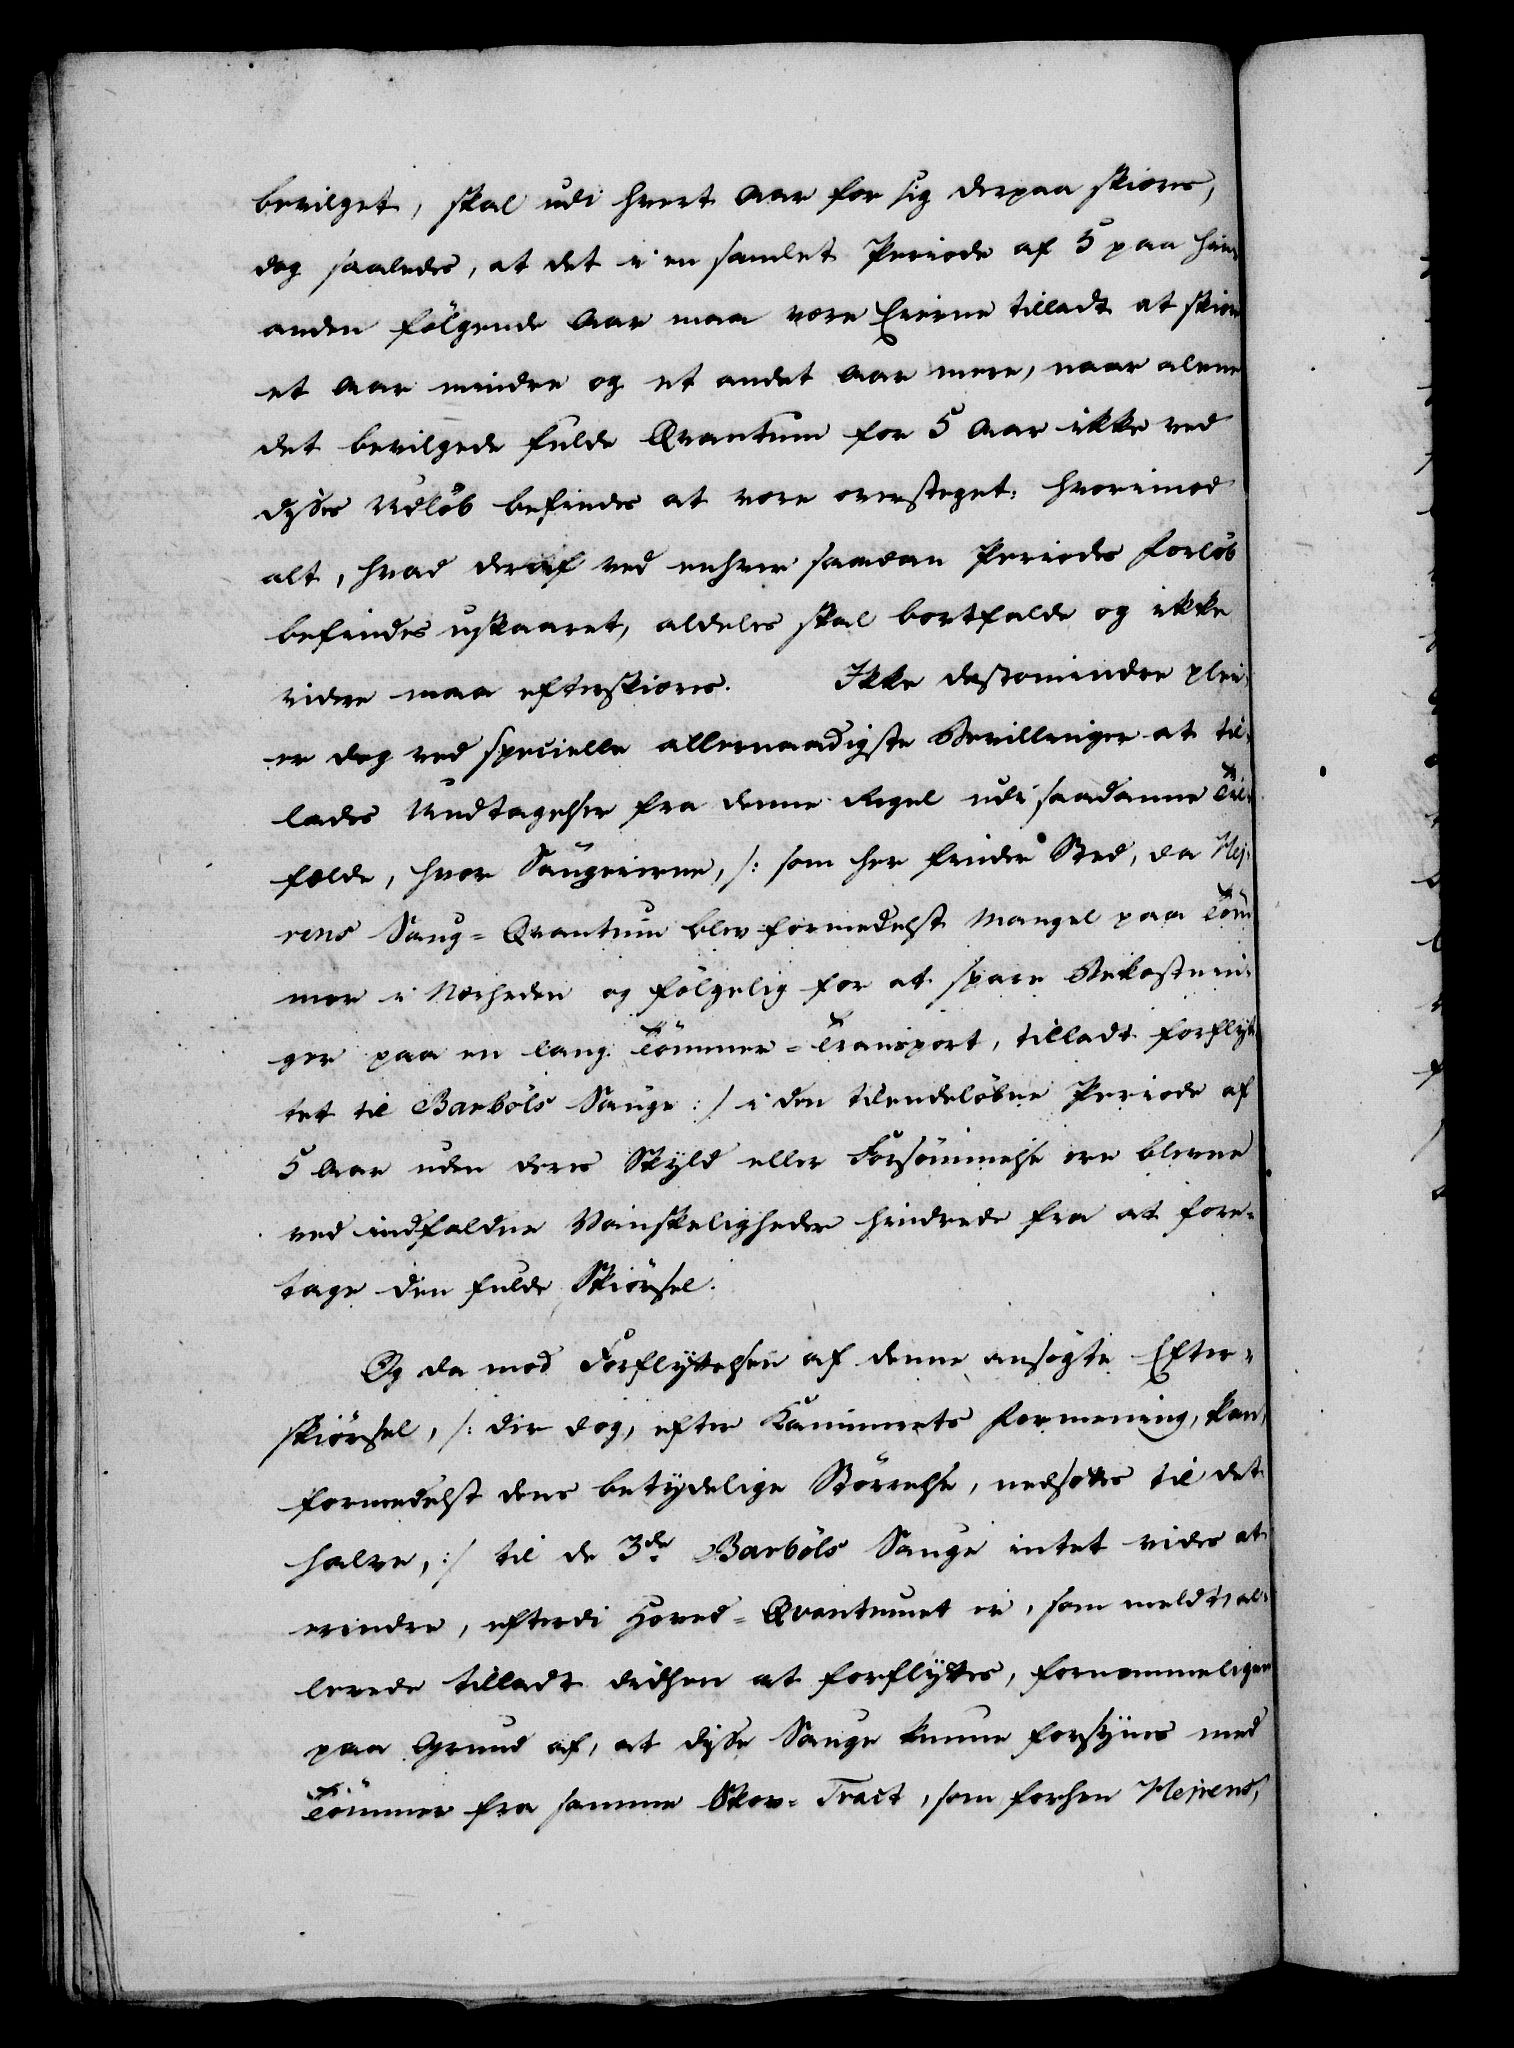 bevilget, skal udi hvert Aar for sig derpaa skiæres,
dog saaledes, at det i en samlet Periode af 5 paa hin-
anden følgende Aar maa være Eierne tilladt at skiære
et Aar mindre og et andet Aar mere, naar alene
det bevilgede fulde Qvantum for 5 Aar ikke ved
disses Udløb befindes at være oversteget: hvorimod
alt, hvad deraf ved enhver saadan Periodes Forløb
befindes uskaaret, aldeles skal bortfalde og ikke
videre maa efterskiæres. Ikke destomindre plei-
er dog ved specielle allernaadigste Bevillinger at til-
lades Undtagelser fra denne Regel udi saadanne Til-
fælde, hvor Saugeierne, /: som her finder Sted, da Hej-
rens Saug-Qvantum blev formedelst Mangel paa Töm-
mer i Nærheden og følgelig for at spare Bekostnin-
ger paa en lang Tömmer-Transport, tilladt forflyt-
tet til Barböls Sauge :/ i den tilendeløbne Periode af
5 Aar uden deres Skyld eller Forsömmelse ere blevne
ved indfaldne Vanskeligheder hindrede fra at fore-
tage den fulde Skiörsel.
Og da mod Forflyttelsen af denne ansøgte Efter-
skiörsel, /: der dog, efter Kammerets Formening, kan,
formedelst dens betydelige Störrelse, nedsættes til det
halve, :/ til de 3de Barböls Sauge intet vides at
erindre, efterdi Hoved-Qvantumet er, som meldt, al-
lerede tilladt didhen at forflyttes, fornemmeligen
paa Grund af, at disse Sauge kunne forsynes med
Tömmer fra samme Skov-Tract, som forhen Hejrens,